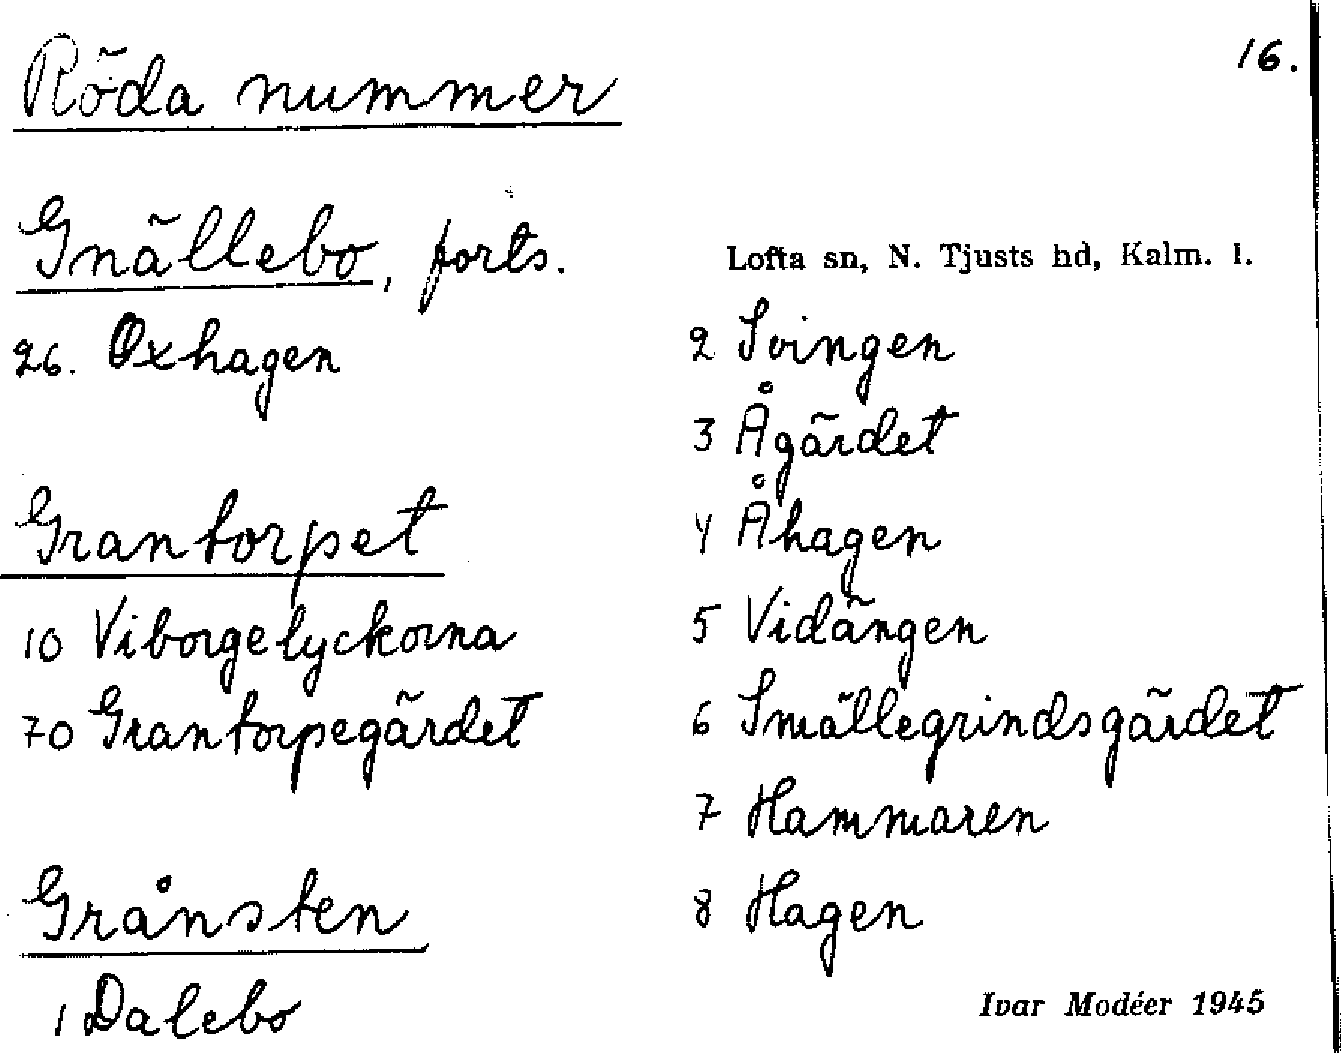 16.
Röda nummer
Gnällebo, forts.
26. Oxhagen
Grantorpet
10 Viborgelyckorna
70 Grantorpegärdet
Grånsten
1 Dalebo
Lofta sn, N. Tjusts hd, Kalm. l.
2 Svingen
3 Ågärdet
4 Åhagen
5 Vidängen
6 Smällegrindsgärdet
7 Hammaren
8 Hagen
Ivar Modéer 1945